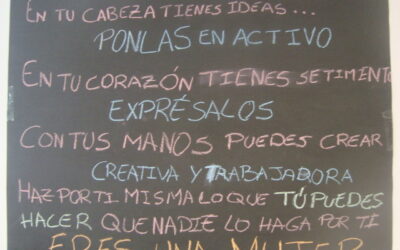 EN TU CABEZA TIENES IDEAS...
PONLAS EN ACTIVO
EN TU CORAZÓN TIENES SETIMIENTO
EXPRÉSALOS
CON TUS MANOS PUEDES CREAR
CREATIVA Y TRABAJADORA
HAZ POR TI MISMA LO QUE TÚ PUEDES
HACER QUE NADIE LO HAGA POR TI
ERES UNA MUJER